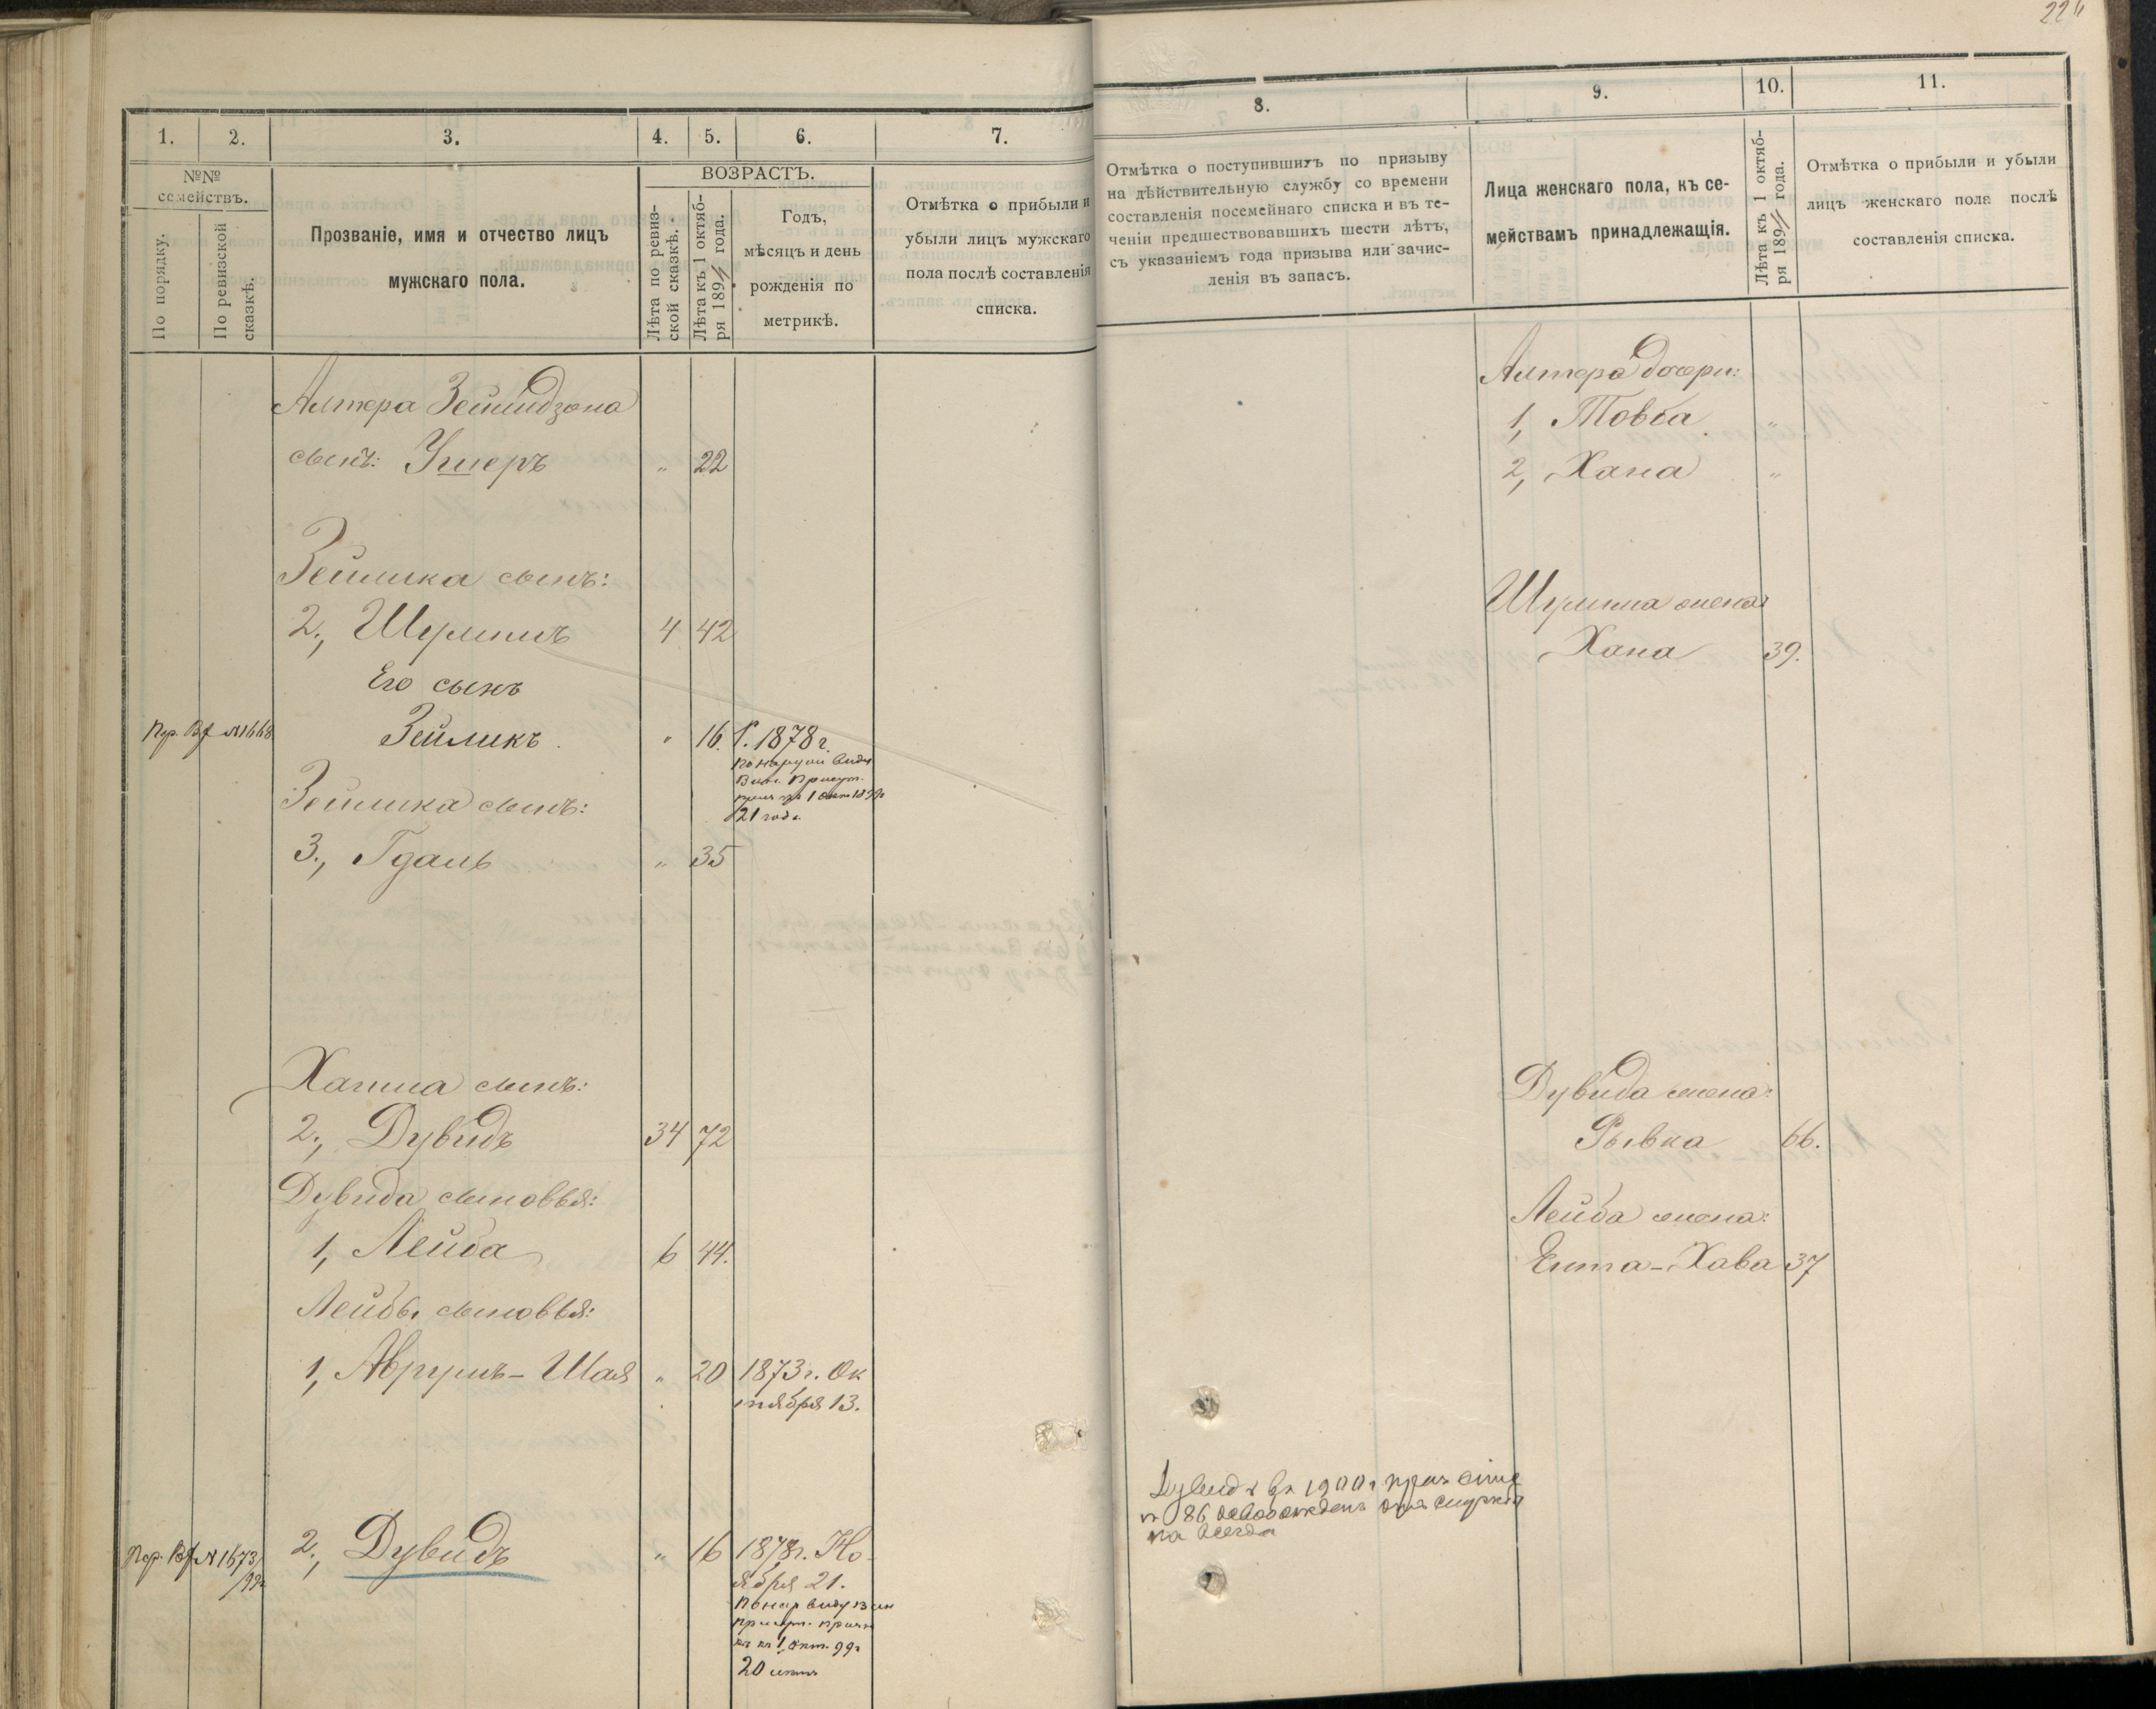 1.
2.
3.
4.
5.
6.
7.
№№
семействъ.
По порядку.
По ревизской
сказкѣ.
Прозваніе, имя и отчество лицъ
мужскаго пола.
ВОЗРАСТЪ.
Лѣта по ревиз-
ской сказкѣ.
Лѣта къ 1 октяб-
ря 1894 года.
Годъ,
мѣсяцъ и день
рожденія по
метрикѣ.
Отмѣтка о прибыли и
убыли лицъ мужскаго
пола послѣ составленія
списка.
Алтера Зейлидзона
сынъ: Ушеръ " 22
Зейлика сынъ:
2., Шулимъ 4 42
Его сынъ
Пр. В/ №1668 Зейликъ " 16. Р. 1878 г.
по наруж виду
Вин. Присут.
1 окт 1899
21 года
Зейлика сынъ:
3., Гдаль " 35
Хаима сынъ:
2., Дувидъ 34 72
Дувида сыновья:
1, Лейба 6 44.
Лейбы сыновья:
1, Аврумъ-Шая " 20 1873 г. Ок
тября 13.
Пр. В/ №1673/99 2., Дувидъ " 16 1878 г. Но-
ября 21.
по нар виду Вин
присут. призн
къ 1 окт. 99 г
20 летъ
224
8.
9.
10.
11.
Отмѣтка о поступившихъ по призыву
на дѣйствительную службу со времени
составленія посемейнаго списка и въ те-
ченіи предшествовавшихъ шести лѣтъ,
съ указаніемъ года призыва или зачис-
ленія въ запасъ.
Лица женскаго пола, къ се-
мействамъ принадлежащія.
Лѣта къ 1 октяб-
ря 1894 года.
Отмѣтка о прибыли и убыли
лицъ женскаго пола послѣ
составленія списка.
Алтера дочери:
1, Товба "
2, Хана "
Шулима жена
Хана 39.
Дувида жена:
Рывка 66.
Лейба жена:
Ента-Хава 37
Дувидъ въ 1900 г
86 освобожденъ отъ службы
на всегда